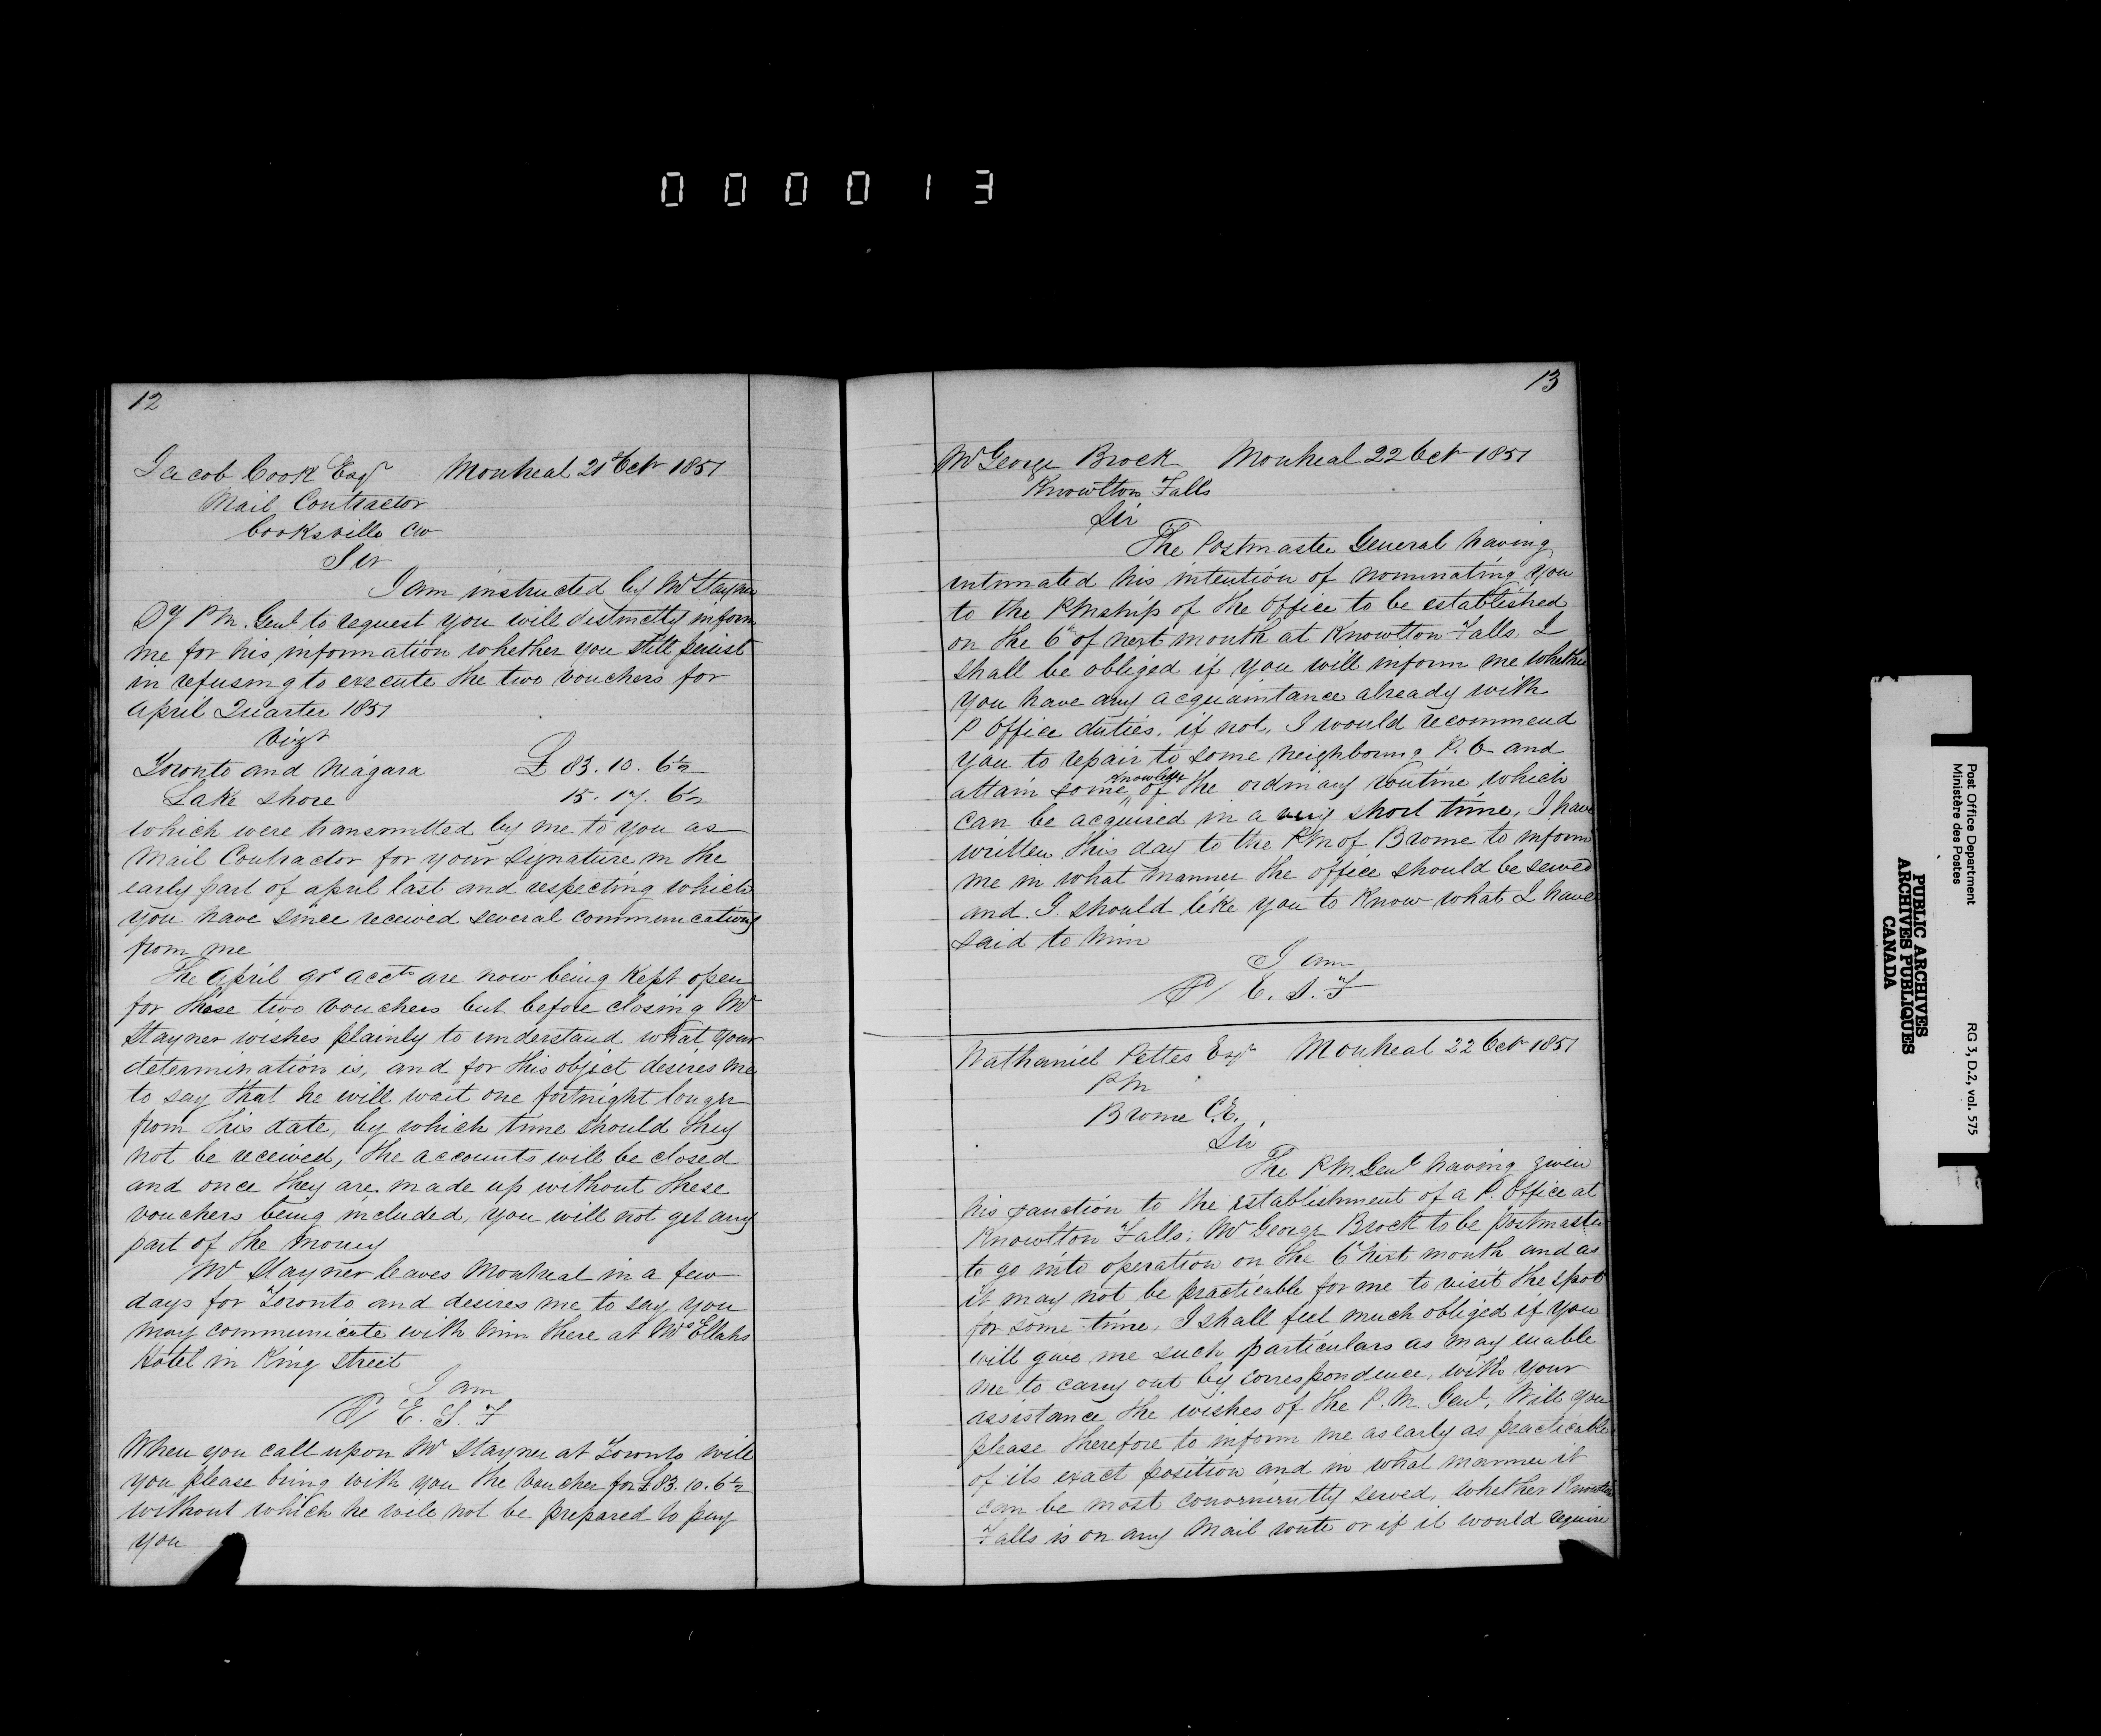 000013
12
Jacob Cook Esqr Montreal 21st Octr 1851
Mail Contractor
Cooksville CW
Sir
I am instructed by Mr Stayner
Dy P M. Genl to request you will distinctly inform
me for his information whether you still persist
in refusing to execute the two vouchers for
April Quarter 1851
Vizt
Toronto and Niagara £ 83. 10. 6½
Lake Shore 15. 17. 6½
which were transmitted by me to you as
Mail Contractor for your signature in the
early part of april last and respecting which
you have since received several communications
from me
The April qr acct are now being kept open
for these two vouchers but before closing Mr
Stayner wishes plainly to understand what your
determination is, and for this object desires me
to say that he will wait one fortnight longer
from this date, by which time should they
not be received, the accounts will be closed
and once they are made up without these
vouchers being included, you will not get any
part of the money
Mr Stayner leaves Montreal in a few
days for Toronto and desires me to say you
may communicate with him there at Mrs Ellahs
Hotel in King street
I am
E. S. F
When you call upon Mr Stayner at Toronto will
you please bring with you the voucher for £83. 10. 6½
without which he will not be prepared to pay
you
13
Mr George Brock Montreal 22 Octr 1851
Knowlton Falls
Sir
The Postmaster General having
intimated his intention of nominating you
to the PMship of the office to be established
on the 6th of next month at Knowlton Falls. I
shall be obliged if you will inform me whether
you have any acquaintance already with
P Office duties. if not, I would recommend
you to repair to some neighboring P. O and
attain some knowledge of the ordinary routine which
can be acquired in a very short time, I have
written this day to the PM of Brome to inform
me in what manner the office should be served
and I should like you to know what I have
said to him
I am
E. S. F
Nathaniel Pettes Esqr Montreal 22 Octr 1851
PM
Brome C.E.
Sir
The P.M. Genl having given
his sanction to the establishment of a P. Office at
Knowlton Falls; Mr George Brock to be postmaster
to go into operation on the 6 next month and as
it may not be practicable for me to visit the spot
for some time, I shall feel much obliged if you
will give me such particulars as may enable
me to carry out by correspondence, with your
assistance the wishes of the P. M. Genl, Will you
please therefore to inform me as early as practicable
of its exact position and in what manner it
can be most conveniently served, whether Knowlton
Falls is on any Mail route or if it would require
Post Office Department
Ministère des Postes
RG 3, D.2, vol. 575
PUBLIC ARCHIVES
ARCHIVES PUBLIQUES
CANADA